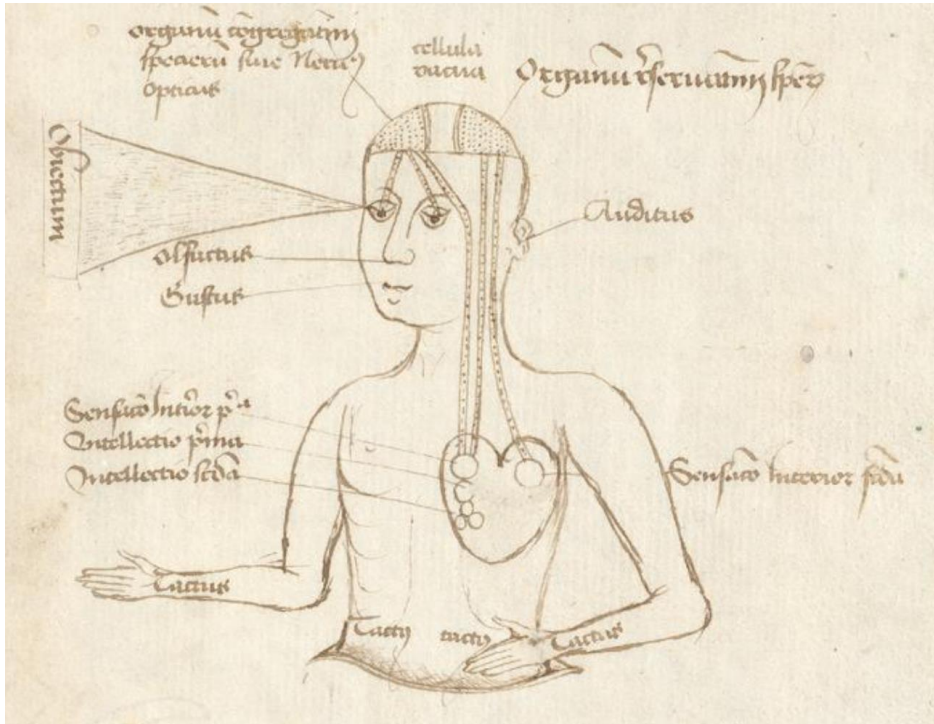 organū cōgregatiuū
specierū siue Neruꝰ
opticus
cellula
vacua
Organū
Obiectum
Auditus
Olfactus
Gustus
Sensatō Intior pᵃ
Intellectio pⁱma
Intellectio scdā
Sensatō Interior scdā
Tactus
Tactꝰ tactꝰ Tactus